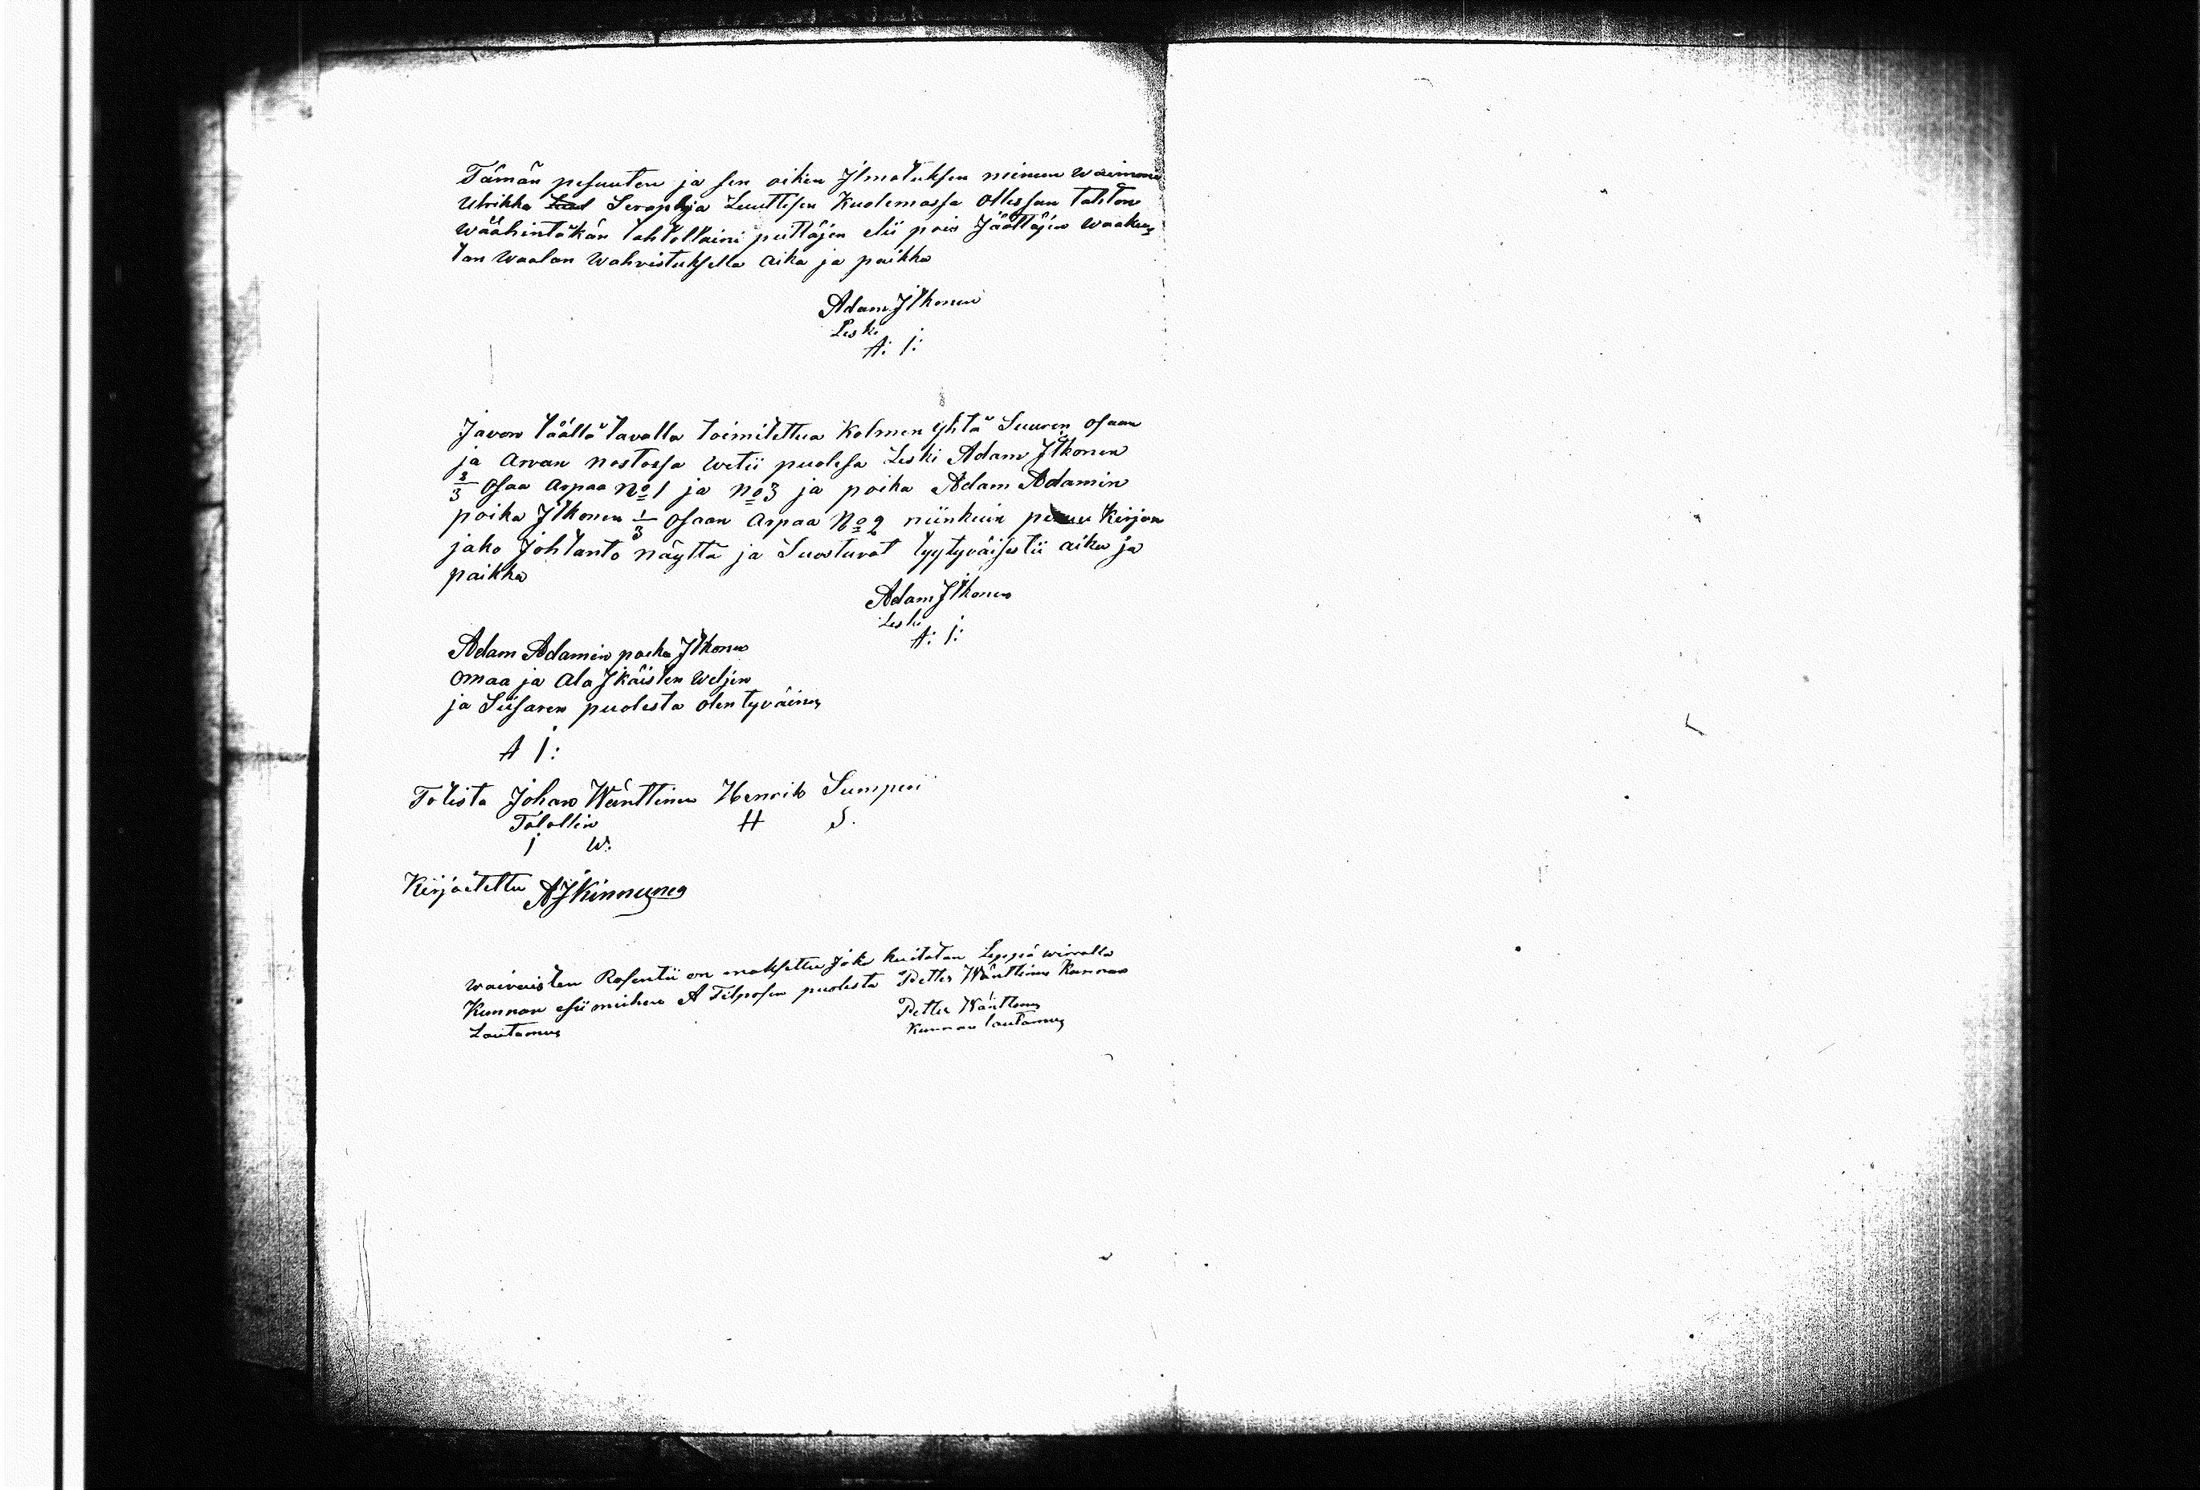 Tämän pesuuten ja sen oikien Jlmotuksen minun waimoni
Ulrikka Seraphja Luuttisen Kuolemassa Ollessan tahton
wäähintäkän tahtottaini puttäjen eli pois Jäättäjen waakun
tan waalan wahvistuksella aika ja paikka
Adam Jtkonen
Leski
A: J:
Javon täällä tavalla toimitettua Kolmen yhtä Suuren Osaan
ja arvan nostossa wetii puolesa Leski Adam Jtkonen
2/3 Osaa arpaa No 1 ja No 3 ja poika Adam Adamin
poika Jtkonen 1/3 Osaan arpaa No 2 niinkuin Kirjan
jako Johtanto näyttä ja Suostuvat tyytyväisestii aika ja
paikka
Adam Jtkonen
Leski
A: J:
Adam Adamin poika Jtkonen
Omaa ja ala Jkäisten weljen
ja Siisaren puolesta olen tyväinen
A J:
Totista Johan Wänttinen Henrik Sumpeii
Talollin H S.
J W:
Kirjoitettu AJKinnunen
waivaisten Rosentii on maksettu Joka kuitatan Leppäwirralla
Kunnan esiimiehen A Tilposen puolesta Petter Wänttinen Kunnan
Lautamies
Petter Wänttinen
Kunnan lautamies